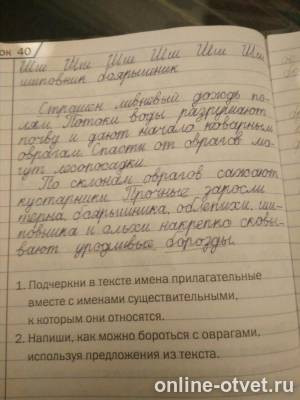 ок 40
Шш Шш Шш Шш Шш Шш
шиповник боярышник
Страшен ливневый дождь по-
лям. Потоки воды разрушают
почву и дают начало коварным
оврагам. Спасти от оврагов мо-
гут лесопосадки.
По склонам оврагов сажают
кустарники. Прочные заросли
терна, боярышника, облепихи, ши-
повника и ольхи накрепко сковы-
вают уродливые борозды.
1. Подчеркни в тексте имена прилагательные
вместе с именами существительными,
к которым они относятся.
2. Напиши, как можно бороться с оврагами,
используя предложения из текста.
online-otvet.ru